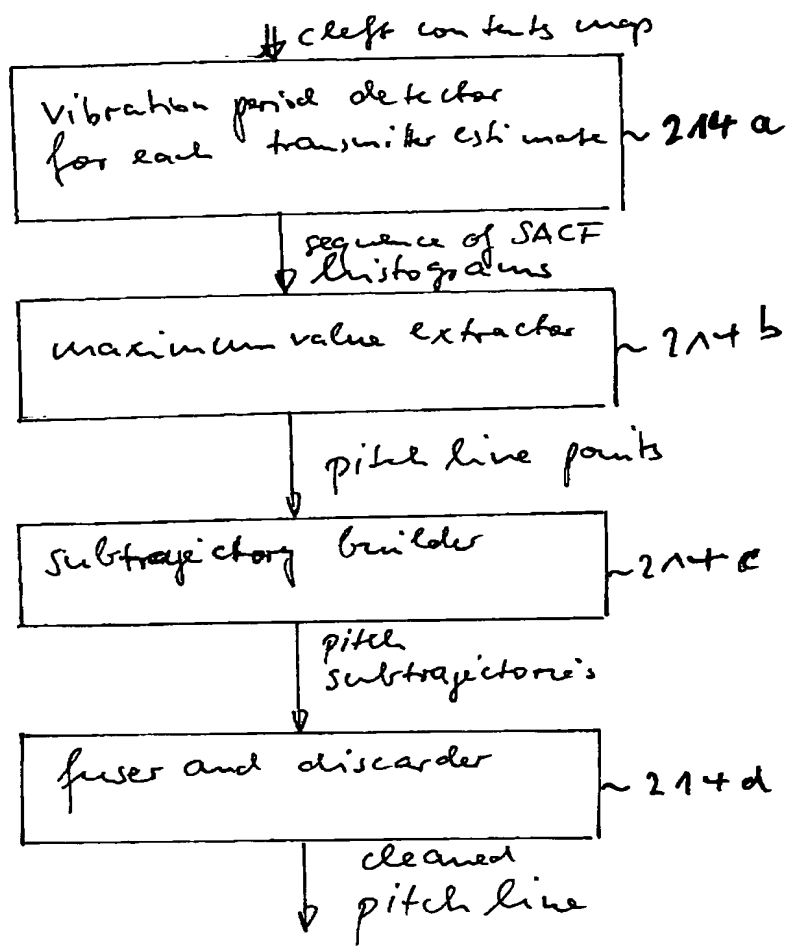 cleft contents map
vibration period detector
for each transmitter estimate
214 a
sequence of SACF
histograms
maximum value extractor
214 b
pitch line points
subtrajectory builder
214 c
pitch
subtrajectories
fuser and discarder
214 d
cleaned
pitch line